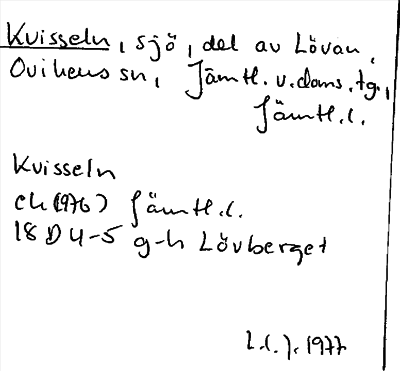 Kvisseln, sjö, del av Lövan,
Ovikens sn, Jämtl. v. doms. tg.,
Jämtl. l.
Kvisseln
ek (1976) Jämtl. l.
18 D 4-5 g-h Lövberget
L. l. J. 1977